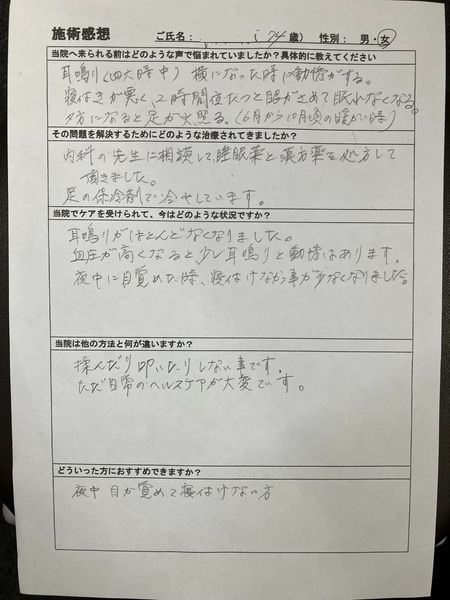 施術感想 ご氏名： 74 歳） 性別： 男・女
当院へ来られる前はどのような声で悩まれていましたか？具体的に教えてください
耳鳴り（四六時中） 横になった時に動悸がする。
寝付きが悪く、2時間位たつと眼がさめて眠れなくなる。
夕方になると足が火照る。（6月から10月頃の暖かい時）
その問題を解決するためにどのような治療されてきましたか？
内科の先生に相談して、睡眠薬と漢方薬を処方して
頂きました。
足の保冷剤で冷やしています。
当院でケアを受けられて、今はどのような状況ですか？
耳鳴りがほとんどなくなりました。
血圧が高くなると少し耳鳴りと動悸はあります。
夜中に目覚めた時、寝付けなかった事が少なくなりました。
当院は他の方法と何が違いますか？
揉んだり叩いたりしない事です。
ただ日常のヘルスケアが大変です。
どういった方におすすめできますか？
夜中 目が覚めて寝付けない方